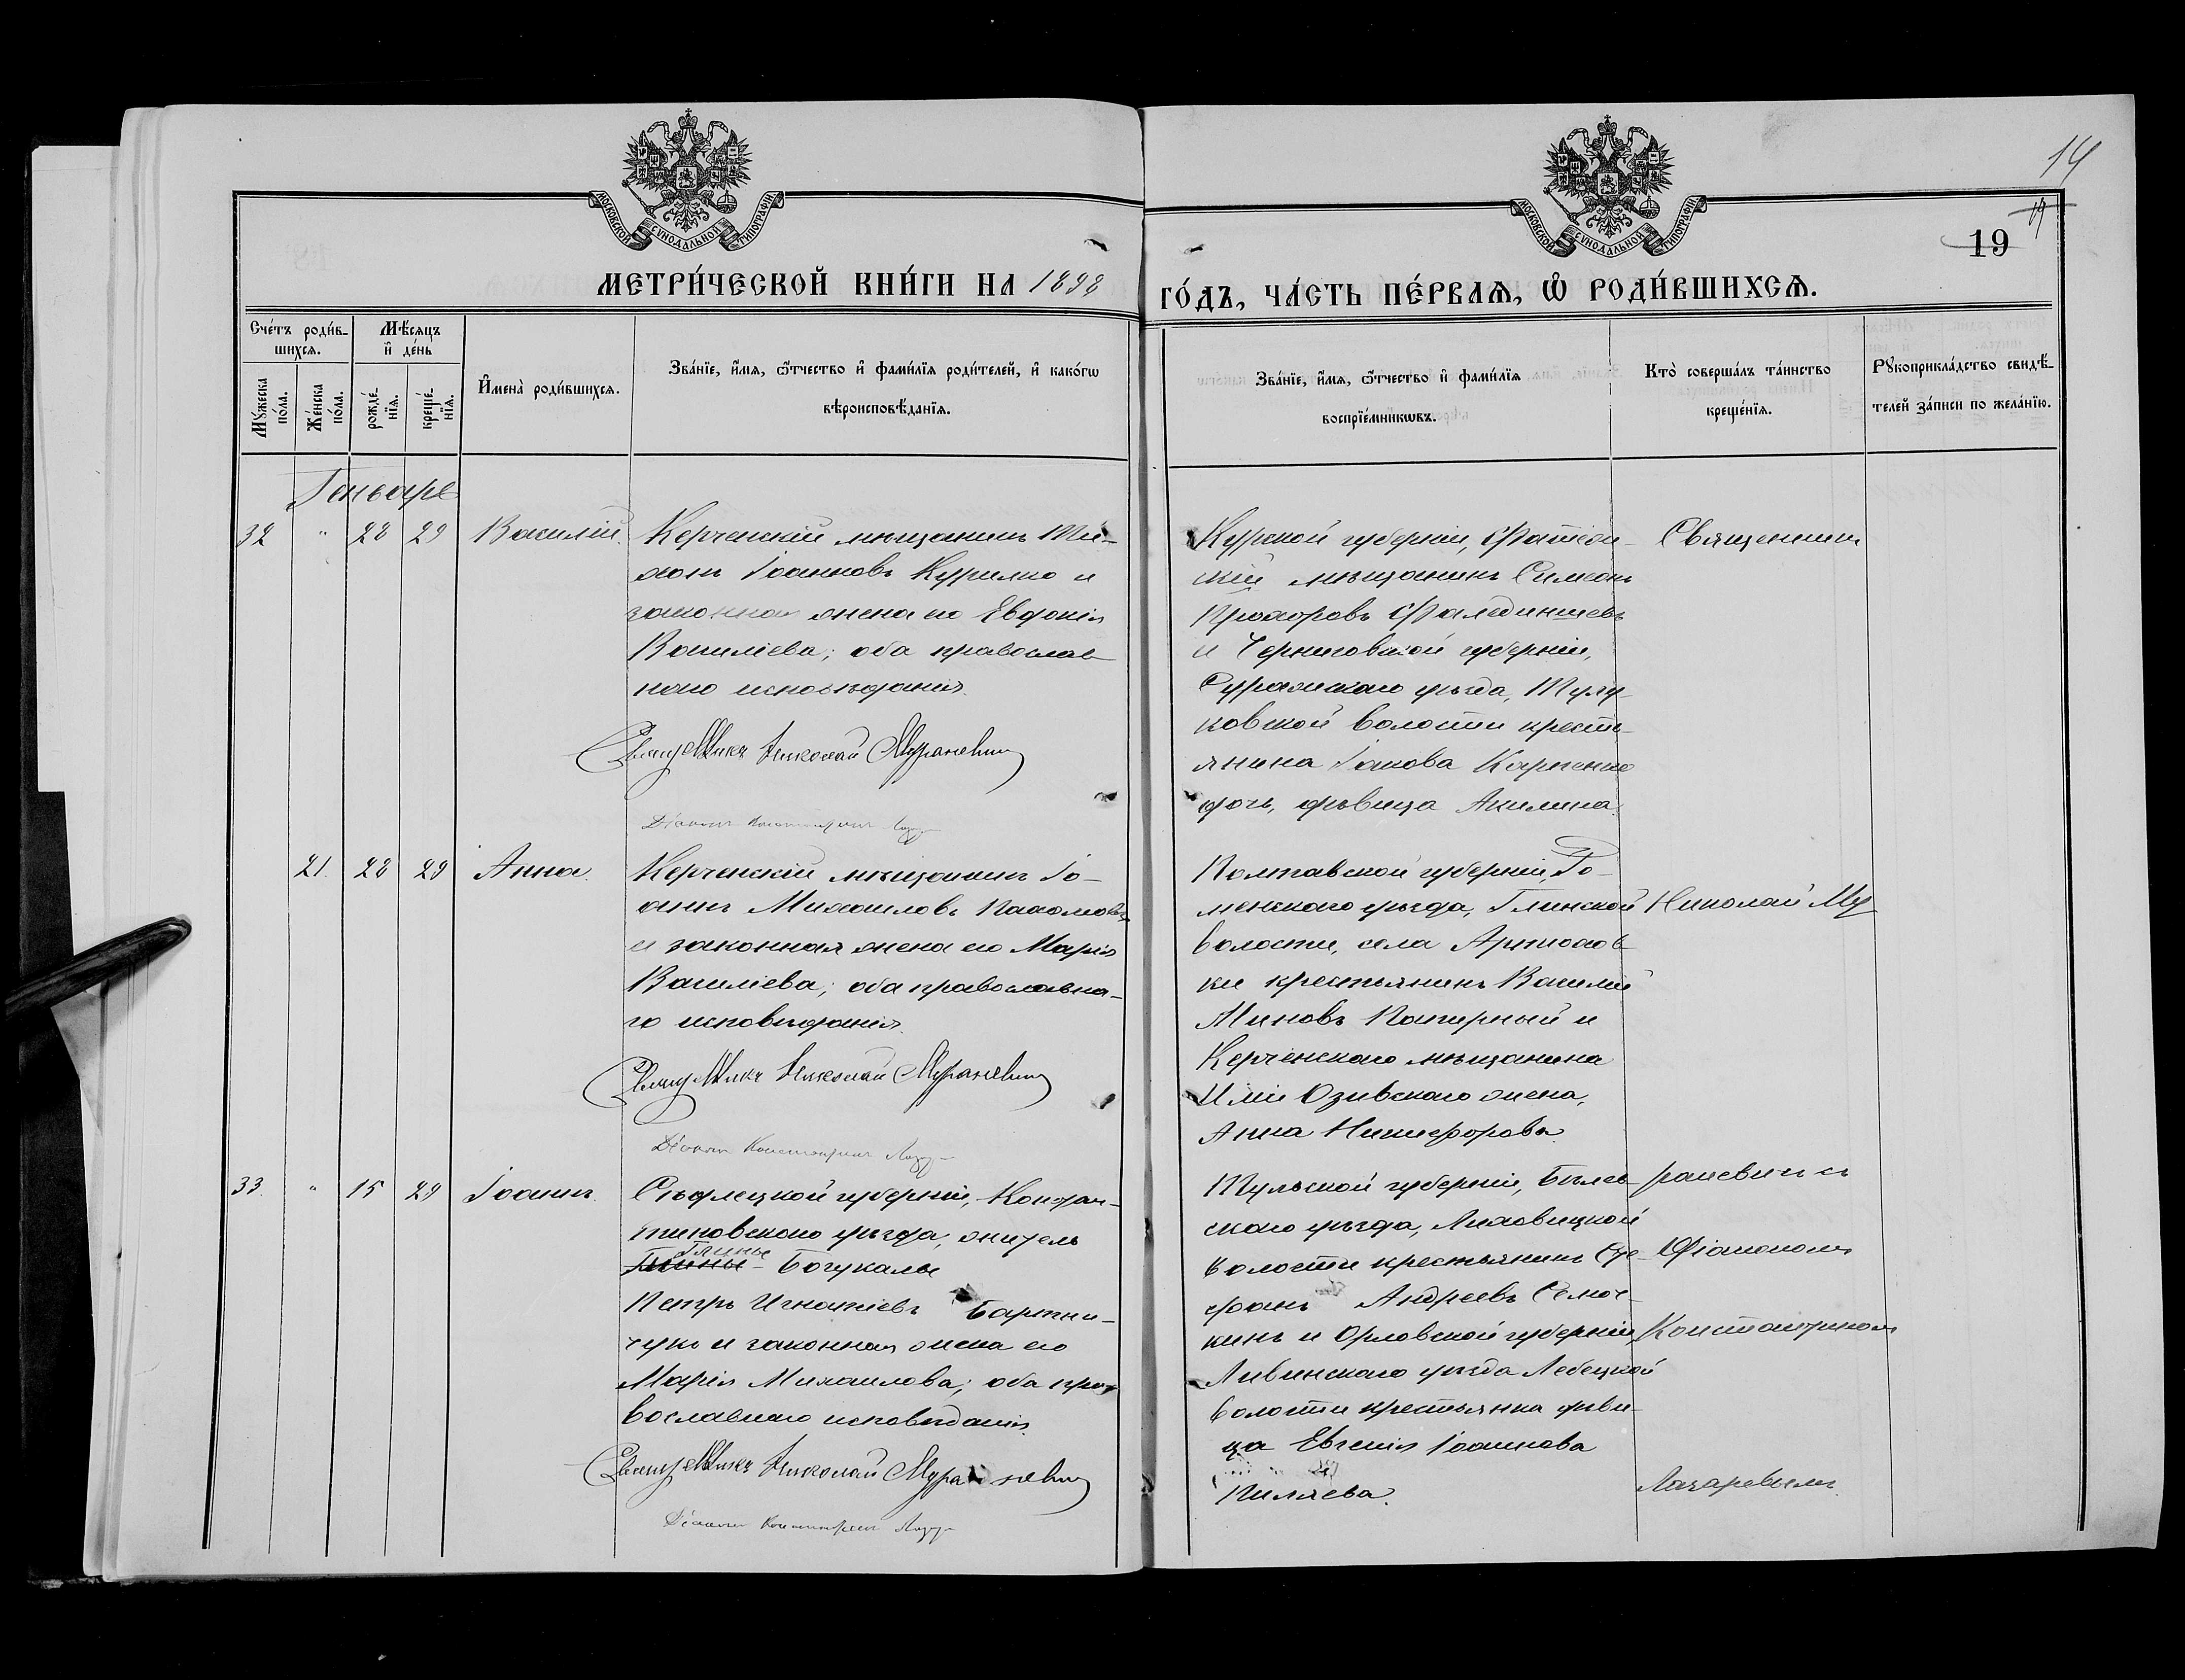 МОСКОВСКОЙ СУНОДАЛЬНОЙ ТИПОГРАФІИ
МОСКОВСКОЙ СУНОДАЛЬНОЙ ТИПОГРАФІИ
14
19
19
МЕТРИ́ЧЕСКОЙ КНИ́ГИ НА 1898
ГО́ДЪ, ЧА́СТЬ ПЕ́РВАѦ, Ѡ҆ РОДИ́ВШИХСѦ.
Сче́тъ роди́в-
шихсѧ.
Мѹ́жеска
по́ла.
Же́нска
по́ла.
Мѣ́сѧцъ
и҆ де́нь
рожде́-
нїѧ.
креще́-
нїѧ.
И҆мена̀ роди́вшихсѧ.
Зва́нїе, и҆́мѧ, ѻ҆́тчество и҆ фами́лїѧ роди́телей, и҆ како́гѡ
вѣроисповѣ́данїѧ.
Зва́нїе, и҆́мѧ, ѻ҆́тчество и҆ фами́лїѧ
воспрїе́мникѡвъ.
Кто̀ соверша́лъ та́инство
креще́нїѧ.
Рѹкоприкла́дство свидѣ́-
телей за́писи по жела́нїю.
Генварь
32 " 28 29 Василій.
Керченскій мѣщанинъ Ти-
хонъ Іоанновъ Курилко и
законная жена его Евдокія
Васильева; оба православ-
наго исповѣданія.
Священникъ Николай Мураневич
Діаконъ Константинъ Лазар
Курской губерніи, Фатеж-
скій мѣщанинъ Симеонъ
Прохоровъ
и Черниговской губерніи,
Суражскаго уѣзда,
ковской волости кресть-
янина Іакова Карпенко
дочь, дѣвица Акилина.
21. 28 29 Анна.
Керченскій мѣщанинъ Іо-
аннъ Михаиловъ Пахомовъ
и законная жена его Марія
Василіева; оба православна-
го исповѣданія.
Священникъ Николай Мураневич
Діаконъ Константинъ Лазар
Полтавской губерніи, Ро-
менскаго уѣзда, Глинской
волости, села Артюхов-
ки крестьянинъ Василій
Миновъ и
Керченскаго мѣщанина
Иліи жена,
Анна Никифорова.
33. " 15 29 Іоаннъ.
Сѣдлецкой губерніи, Констан-
тиновскаго уѣзда, житель
Глинье
Богукалы
Петръ Игнатіевъ Бартни-
чукъ и законная жена его
Марія Михаилова; оба пра-
вославнаго исповѣданія.
Священникъ Николай Мураневич
Діаконъ Константинъ Лазар
Тульской губерніи, Бѣлев-
скаго уѣзда,
волости крестьянинъ Сте-
фанъ Андреевъ
кинъ и Орловской губерніи,
Ливенскаго уѣзда
волости крестьянка дѣви-
ца Евгенія Іоаннова
Пиляева.
Священникъ
Николай Му
раневичъ съ
Діакономъ
Константиномъ
Лазаревымъ.